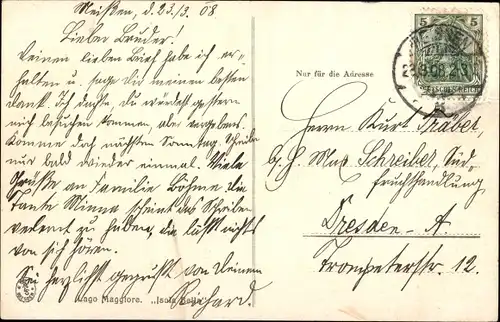 Meißen, d. 23./3. 08.
Lieber Bruder!
Deinen lieben Brief habe ich er-
halten u. sage dir meinen besten
Dank. Ich dachte, du würdest gestern
mich besuchen kommen, aber vergebens.
Komme doch nächsten Sonntag. Schreibe
nur bald wieder einmal. Viele
Grüße an Familie Böhme. Die
Tante Minna scheint das Schreiben
verlernt zu haben, die läßt nichts
von sich hören.
Sei herzlichst gegrüßt von Deinem
Richard.
Lago Maggiore. "Isola Bella"
5 5
MEISSEN
DEUTSCHES REICH
Nur für die Adresse
Herrn Kurt Träber,
b./H. Max Schreiber, Süd-
fruchthandlung
Dresden-A.
Trompeterstr. 12.